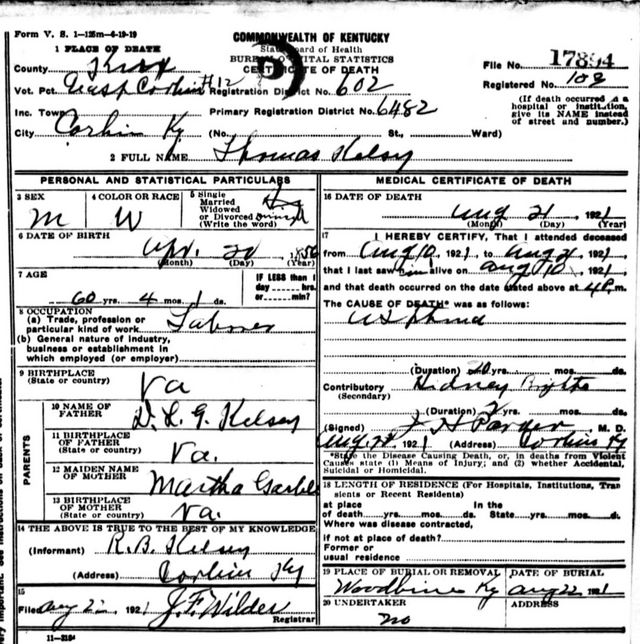 Form V. S. 1—125m—6-19-19
COMMONWEALTH OF KENTUCKY
State Board of Health
BUREAU OF VITAL STATISTICS
CERTIFICATE OF DEATH
1 PLACE OF DEATH
County Knox
File No. 17894
Registered No. 108
Vot. Pct. West Corbin #12 Registration District No. 602
Inc. Town Primary Registration District No. 6482
City Corbin Ky (No. St., Ward)
(If death occurred in a hospital or institution, give its NAME instead of street and number.)
2 FULL NAME Thomas Kelsy
PERSONAL AND STATISTICAL PARTICULARS
3 SEX
M
4 COLOR OR RACE
W
5 Single
Married
Widowed
or Divorced
(Write the word)
6 DATE OF BIRTH
Apr. 20
(Month) (Day) (Year)
7 AGE
60 yrs. 4 mos. 1 ds.
IF LESS than 1
day ----- hrs.
or ----- min.?
8 OCCUPATION
(a) Trade, profession or
particular kind of work Laborer
(b) General nature of industry,
business or establishment in
which employed (or employer)
9 BIRTHPLACE
(State or country)
Va
PARENTS
10 NAME OF
FATHER
Kelsey
11 BIRTHPLACE
OF FATHER
(State or country)
Va.
12 MAIDEN NAME
OF MOTHER
Martha
13 BIRTHPLACE
OF MOTHER
(State or country)
Va.
14 THE ABOVE IS TRUE TO THE BEST OF MY KNOWLEDGE
(Informant) R.B. Kelsey
(Address) Corbin Ky
15
Filed Aug 22 1921 J.F. Wilder
Registrar
11—3184
MEDICAL CERTIFICATE OF DEATH
16 DATE OF DEATH
Aug 21, 1921
(Month) (Day) (Year)
17
I HEREBY CERTIFY, That I attended deceased
from Aug 10, 1921, to Aug 21, 1921
that I last saw him alive on Aug 10, 1921
and that death occurred on the date stated above at 4 P. m.
The CAUSE OF DEATH* was as follows:
(Duration) 20 yrs. mos. ds.
Contributory Kidney
(Secondary)
(Duration) yrs. mos. ds.
(Signed) J H Parker, M. D.
Aug 1921 (Address) Corbin Ky
*State the Disease Causing Death, or, in deaths from Violent
Causes state (1) Means of Injury; and (2) whether Accidental,
Suicidal or Homicidal.
18 LENGTH OF RESIDENCE (For Hospitals, Institutions, Tran
sients or Recent Residents)
at place In the
of death yrs. mos. ds. State yrs. mos. ds.
Where was disease contracted,
if not at place of death?
Former or
usual residence
19 PLACE OF BURIAL OR REMOVAL
Woodbine Ky
DATE OF BURIAL
Aug 22 1921
20 UNDERTAKER
no
ADDRESS